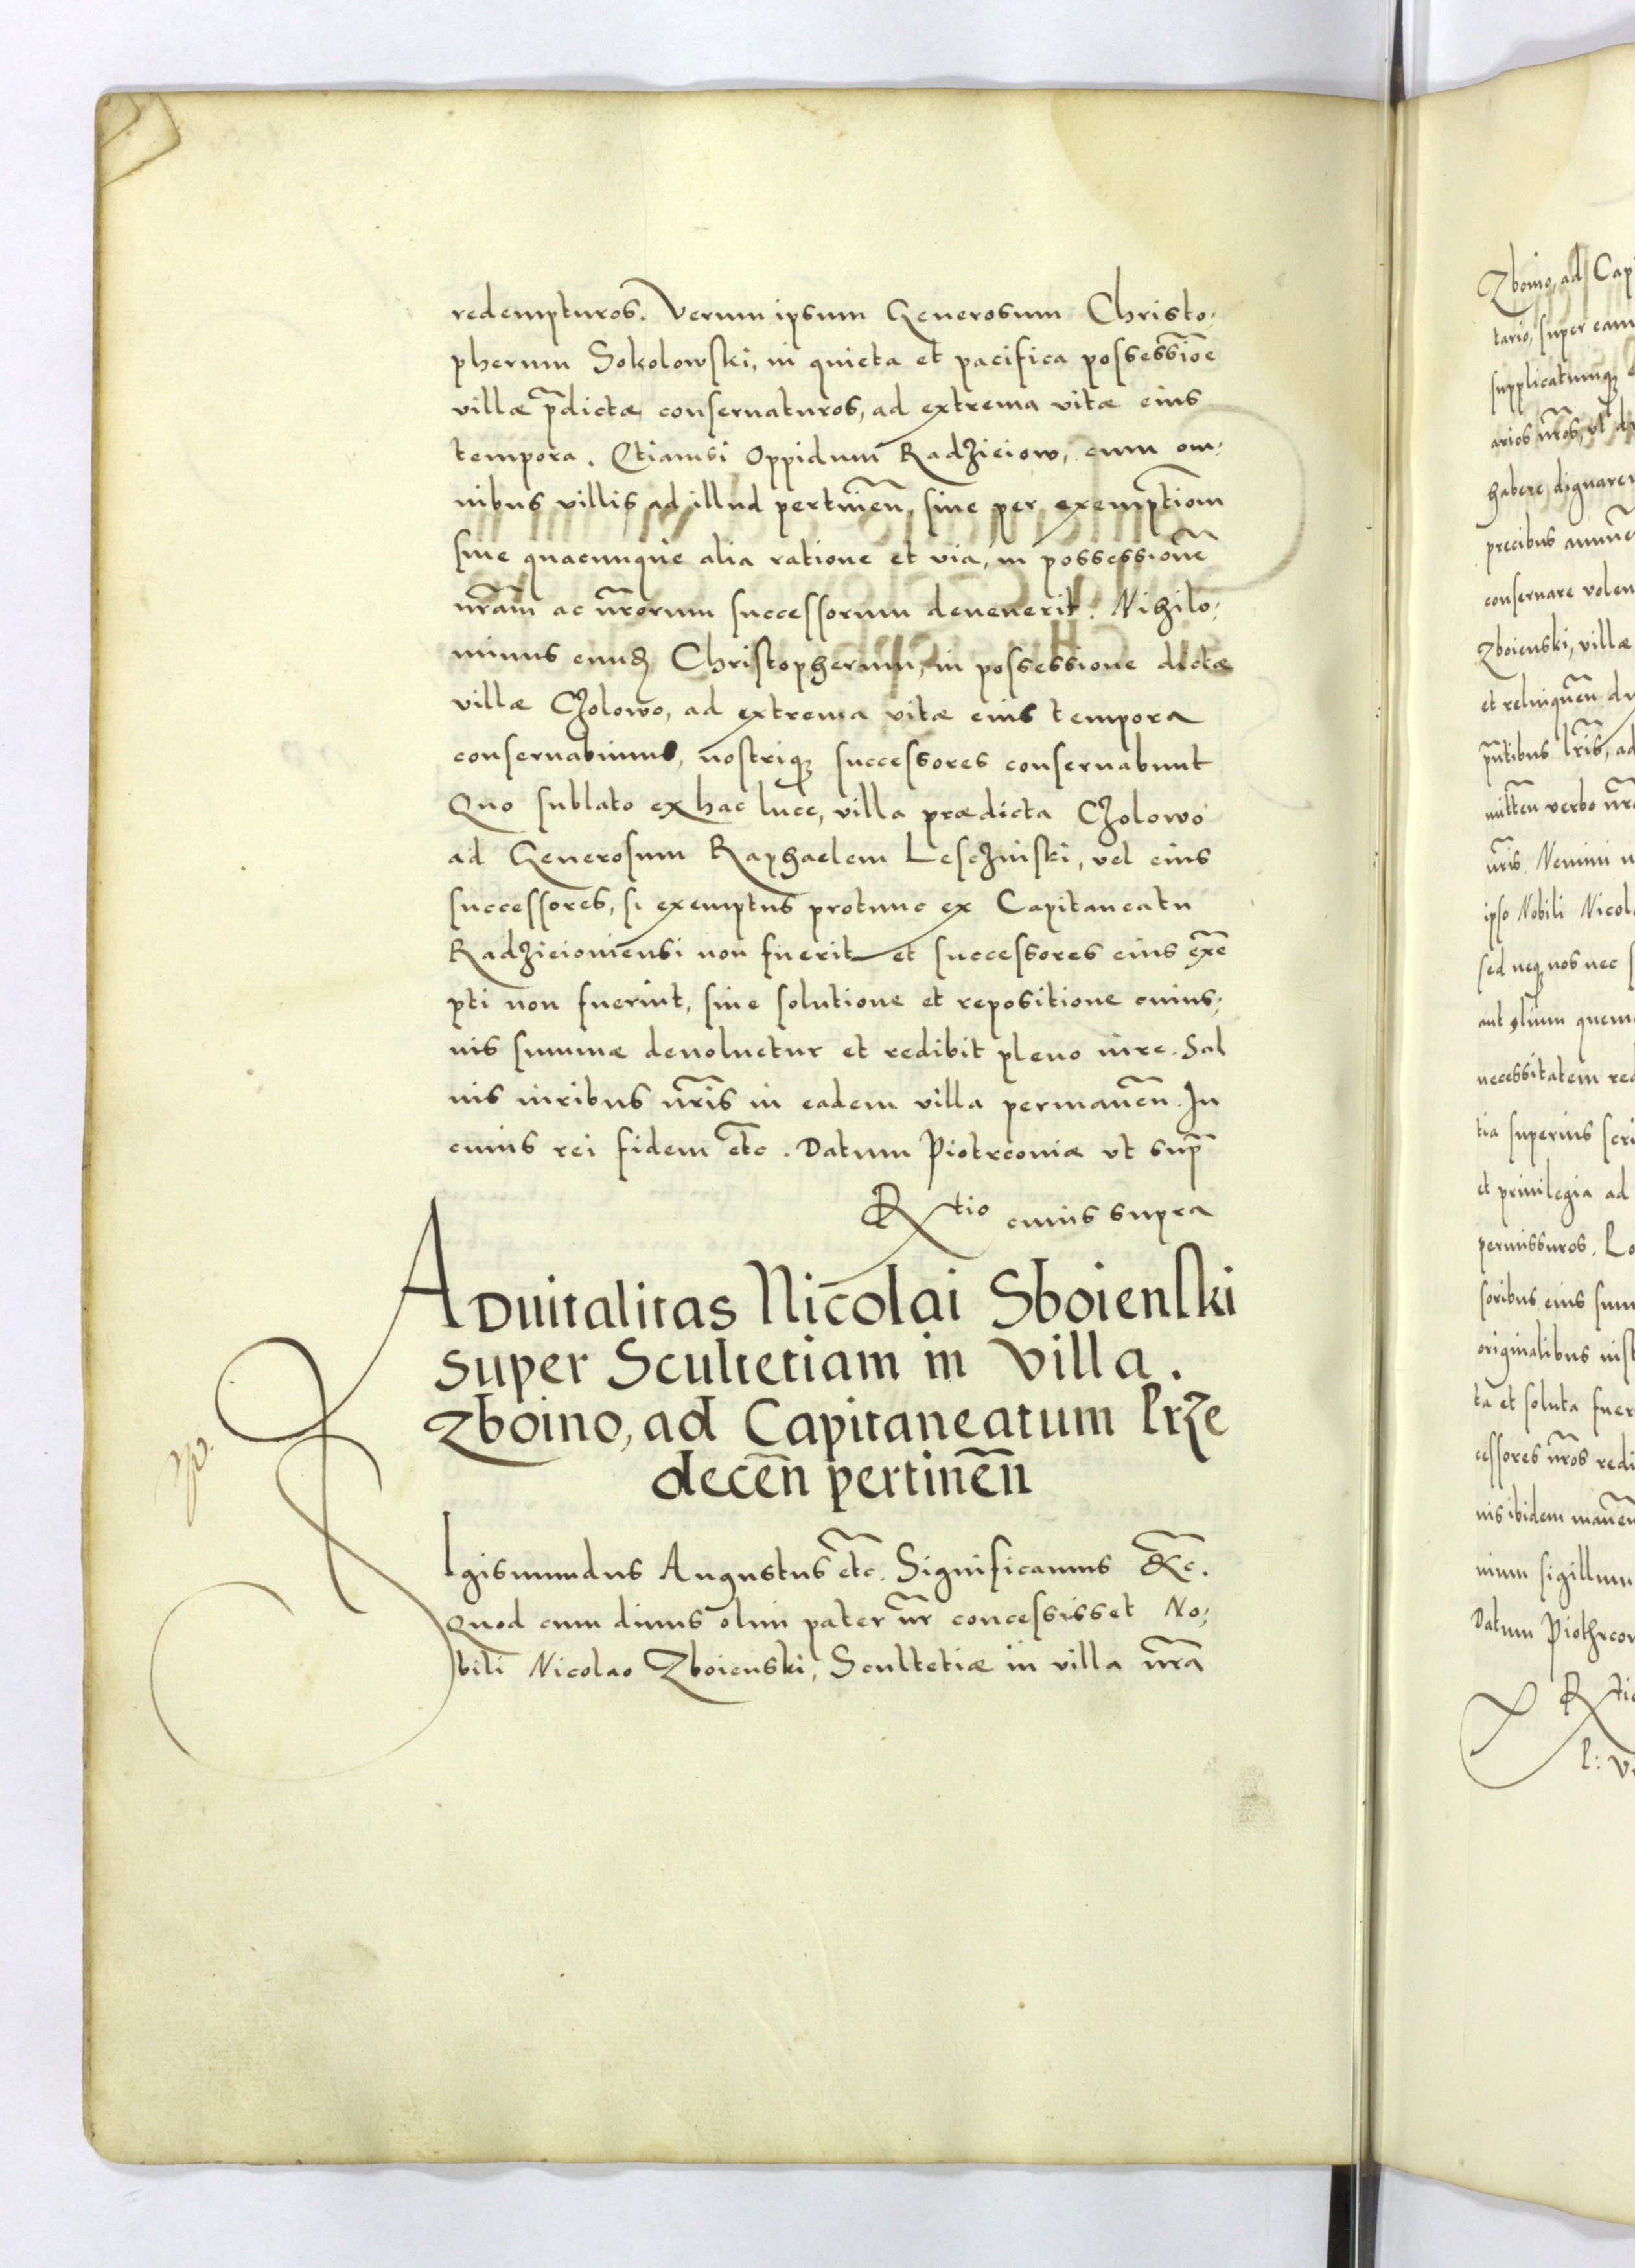 redempturos. Verum ipsum Generosum Christo,
pherum Sokolowski, in quieta et pacifica possessiõe
villæ p̃dictæ conseruaturos, ad extrema vitæ eius
tempora. Etiamsi Oppidum Radzieiow, cum om,
nibus villis ad illud pertineñ, siue per exemptiom̃
siue quacunque alia ratione et via, in possessionẽ
nr̃am ac nr̃orum successorum deuenerit. Nihilo,
minus eundẽ Christopherum, in possessione dictæ
villæ Czolowo, ad extrema vitæ eius tempora
conseruabimus, nostriq3 successores conseruabunt
Quo sublato ex hac luce, villa prædicta Czolowo
ad Generosum Raphaelem Lesczinski, vel eius
successores, si exemptus protunc ex Capitaneatu
Radzieiouiensi non fuerit et successores eius exẽ
pti non fuerint, sine solutione et repositione cuius,
uis summæ deuoluetur et redibit pleno iure. Sal
uis iuribus nr̃is in eadem villa permaneñ. In
cuius rei fidem etc̃. Datum Piotrcouiæ vt sup̃
Rtio cuius supra
Aduitalitas Nicolai Sboienski
super Scultetiam in Villa.
Zboino, ad Capitaneatum Prze
deceñ pertineñ
Igismundus Augustus etc̃. Significamus &c̃.
Quod cum diuus olim pater nr̃ concessisset No,
bili Nicolao Zboienski, Scultetiæ in villa nr̃a
Zboino, ad Cap
tario, super eam
supplicatumq3
arios nr̃os, vt
habere dignarem
precibus
conseruare volen
Zboienski, villæ
et relinqueñ
pñtibus lr̃is, ad
mitteñ verbo nr̃
nr̃is. Nemini
ipso Nobili Nicol
sed neq3 nos nec
aut alium quem
necessitatem red
tia superius scri
et priuilegia ad
permissuros.
soribus eius sum
originalibus
ta et soluta fuer
cessores nr̃os redi
uis ibidem maneñ
sigillum
Datum Piothrcou
Rtio